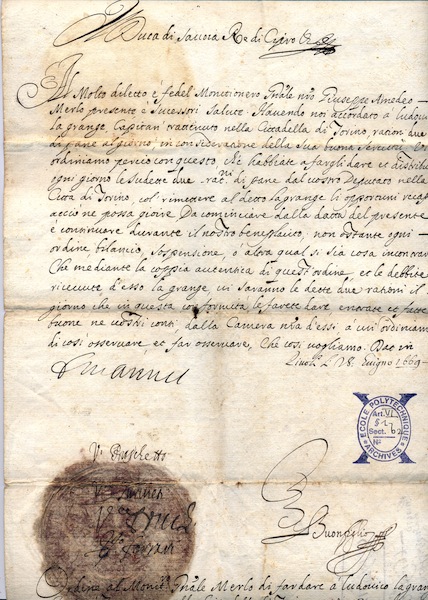 Il Duca di Savoia Re di Cipro &c
Al Molto diletto e fedel Monitionero Gñale nro Giuseppe Amedeo
Merlo presente e Sucessori Salute. Havendo noi accordato a ludovico
la grange, Capitan trattenuto nella Cittadella di Torino, ration due
di pane al giorno, in consideratione della sua buona Servitù. Vi
ordiniamo perciò con questo, che habbiate a fargli dare et distribuire
ogni giorno le sudette due rac.ni di pane dal vostro Deputato nella
Città di Torino, col rimettere al detto lagrange li opportuni recap
acciò ne possa gioire. Da cominciare dalla data del presente
e continuare durante il nostro beneplacito, non ostante ogni
ordine bilancio, sospensione, o altra qual si sia cosa in contrario
Che mediante la coppia autentica di quest'ordine, et le debite
ricevute d'esso la grange, vi saranno le dette due rationi il
giorno che in questa conformità le farete dare entrate et fatte
buone ne vostri conti, dalla Camera nra d'essi, a cui ordiniamo
di così osservare et far osservare, Che così vogliamo. Dat in
li 28 Giugno 1669
Emanuel
V.a Buschetto
Buonfiglio
ECOLE POLYTECHNIQUE
ARCHIVES
Art. VI
§ 2
Sect. b2
No
Ordine al Monit.e Gñale Merlo di far dare a ludovico la grange